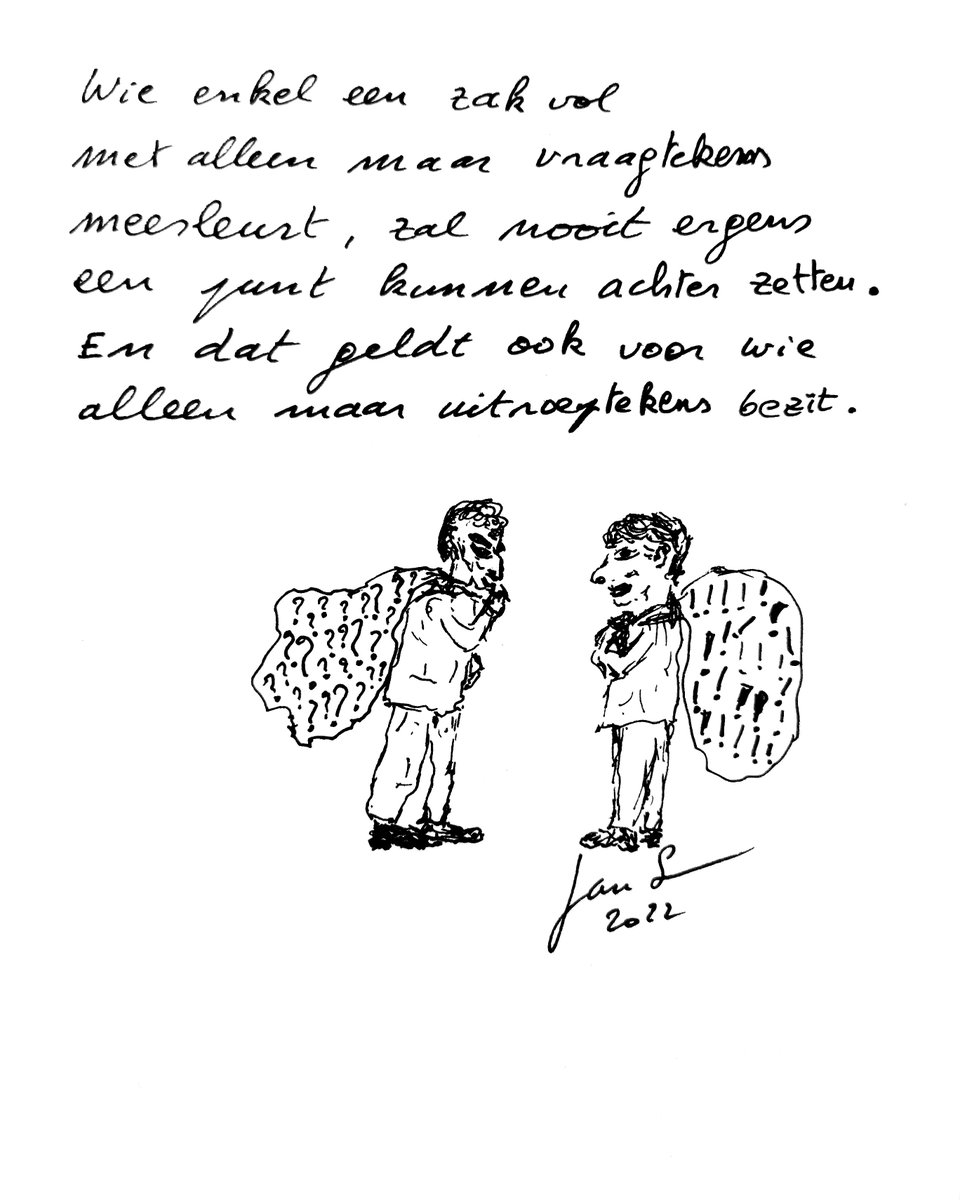 Wie enkel een zak vol
met alleen maar vraagtekens
meesleurt, zal nooit ergens
een punt kunnen achter zetten.
En dat geldt ook voor wie
alleen maar uitroeptekens bezit.
? ? ? ? ? ? ? ? ? ? ? ? ? ? ? ? ? ? ? ? ? ? ? ? ? ? ? ? ? ?
! ! ! ! ! ! ! ! ! ! ! ! ! ! ! ! ! ! ! ! ! ! ! !
Jan S
2022